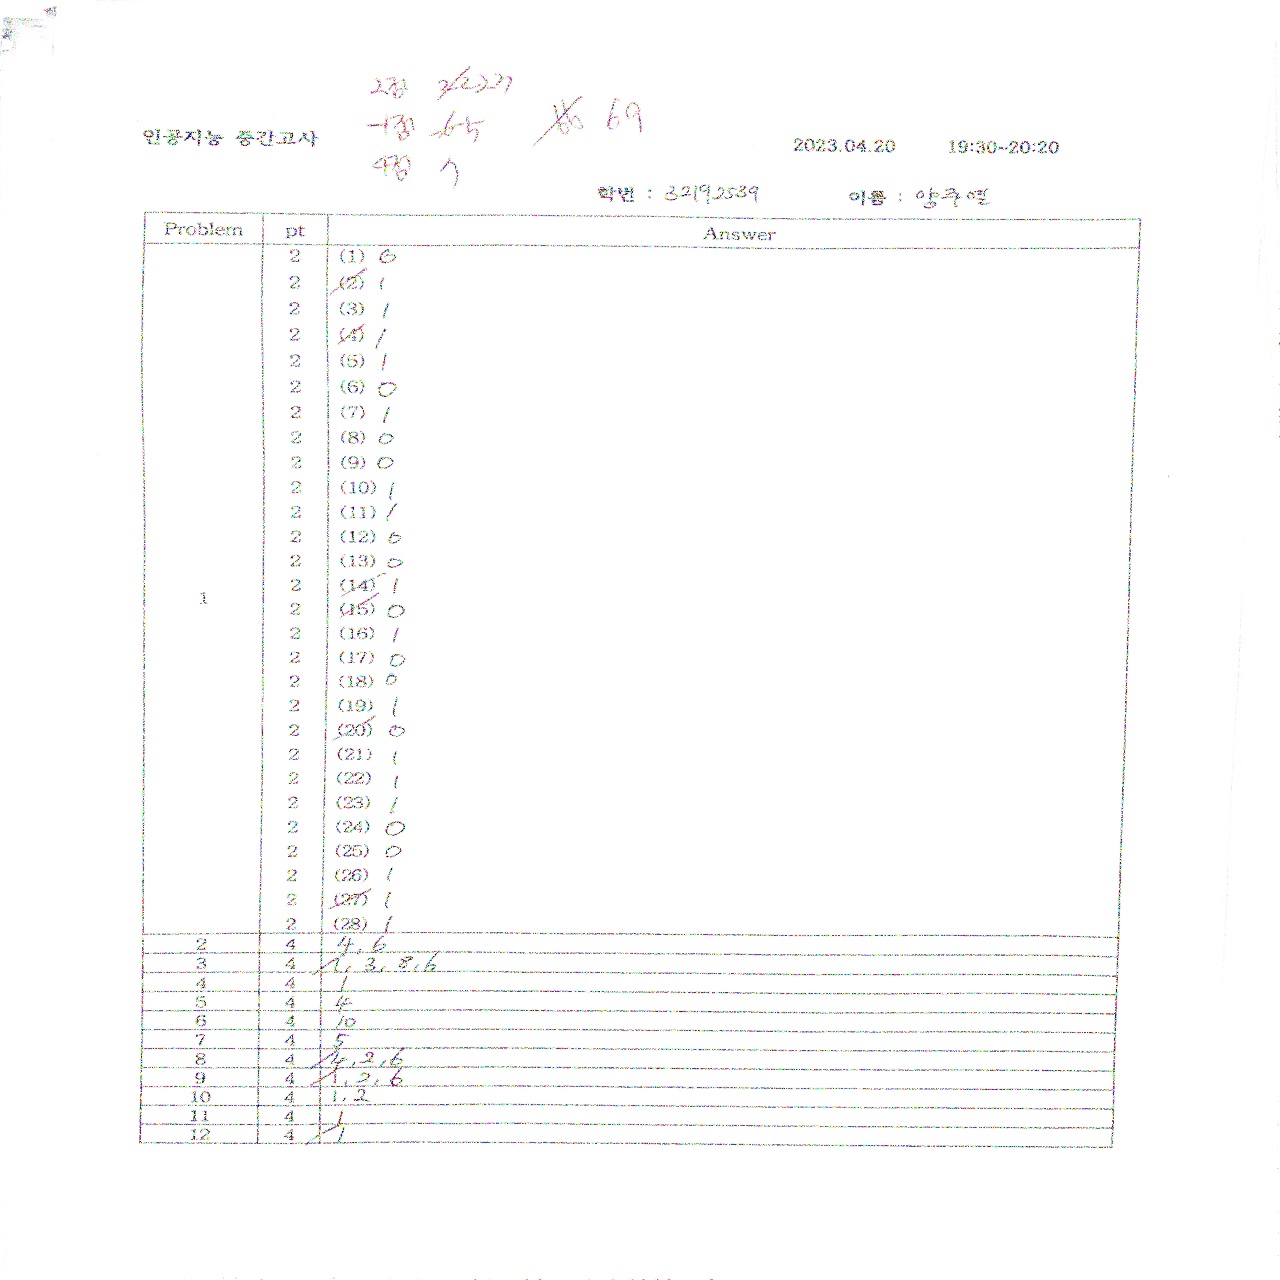 2점
-1점
4점 7
69
인공지능 중간고사
2023.04.20 19:30~20:20
학번 : 32192539 이름 : 양우열
Problem pt Answer
1
2 (1) 0
2 (2) 1
2 (3) 1
2 (4) 1
2 (5) 1
2 (6) 0
2 (7) 1
2 (8) 0
2 (9) 0
2 (10) 1
2 (11) 1
2 (12) 0
2 (13) 0
2 (14) 1
2 (15) 0
2 (16) 1
2 (17) 0
2 (18) 0
2 (19) 1
2 (20) 0
2 (21) 1
2 (22) 1
2 (23) 1
2 (24) 0
2 (25) 0
2 (26) 1
2 (27) 1
2 (28) 1
2 4 4, 6
3 4 1, 3, 8, 6
4 4 1
5 4 4
6 4 10
7 4 5
8 4 4, 2, 6
9 4 1, 2, 6
10 4 1, 2
11 4 1
12 4 1